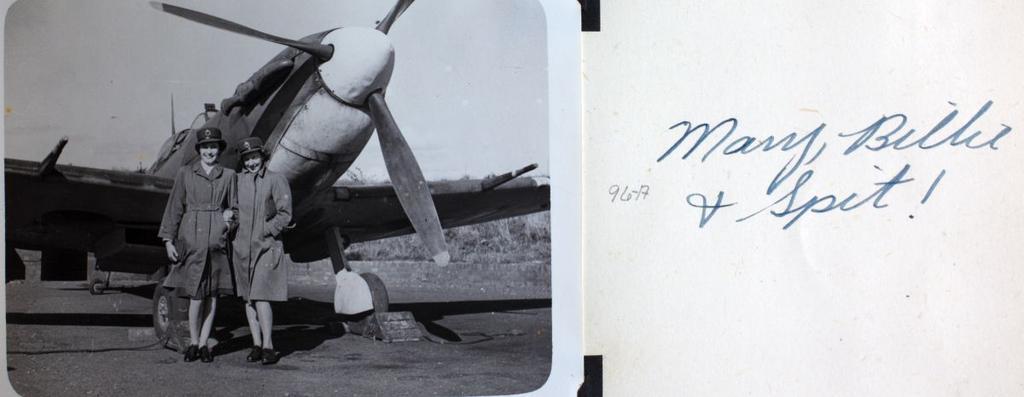 Mary, Billie
& Spit!
96-A